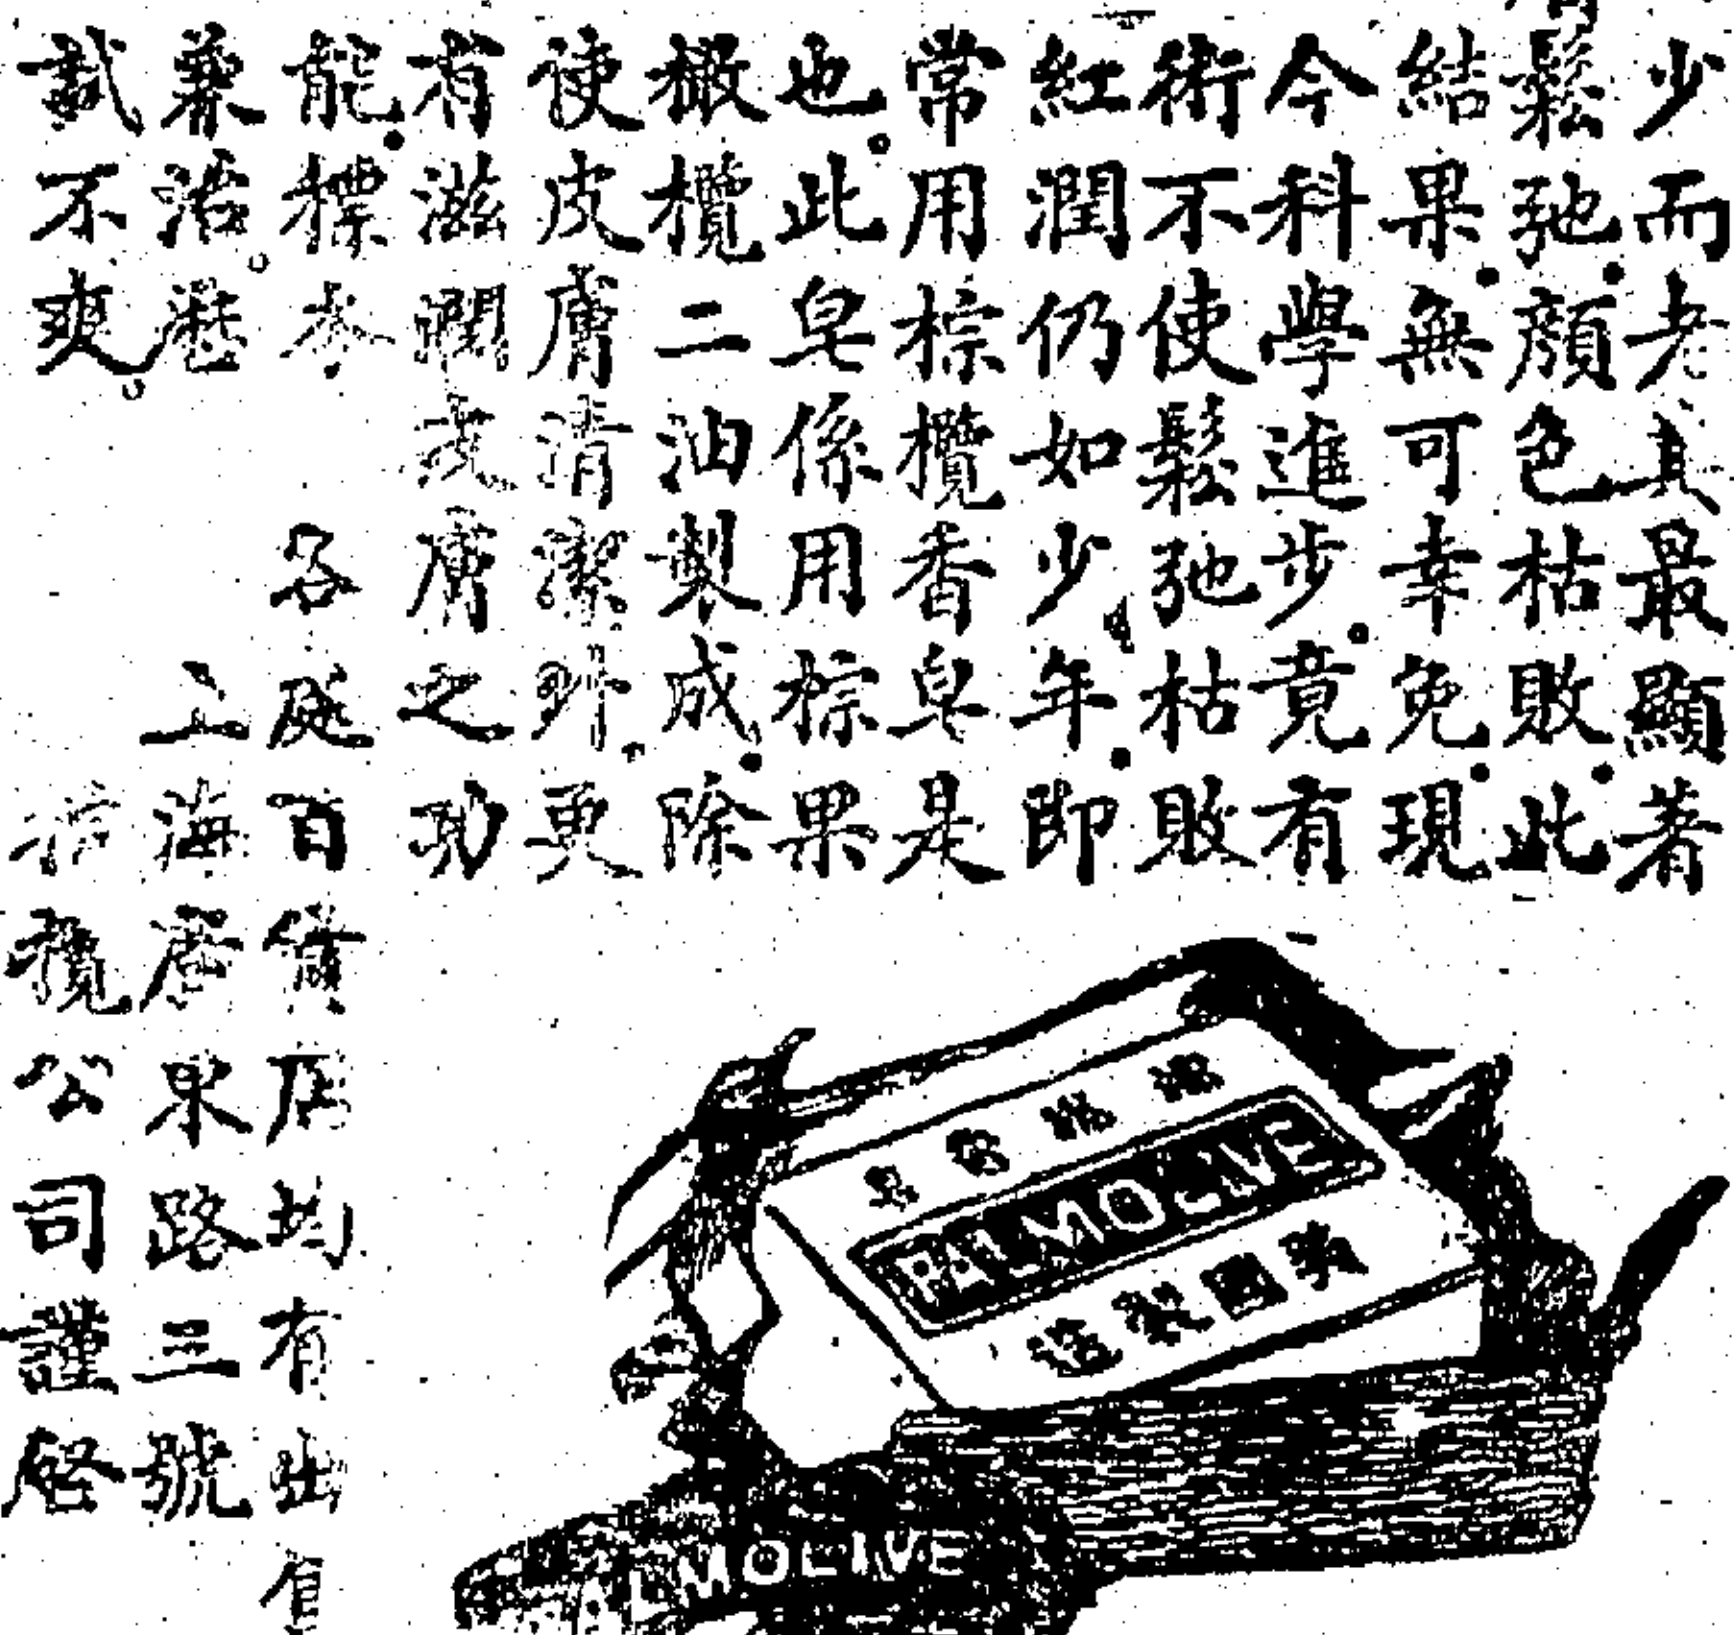 少而老其最顯著
鬆弛.顏色枯敗.此
結果.無可幸免.現
今科學進步。竟有
術不使鬆弛枯敗
紅潤仍如少年.即
常用棕欖香皂是
也。此皂係用棕果
橄欖二油製成.除
使皮膚清潔外.更
有滋潤皮膚之功
能.
兼治。
試不爽。
各處百貨店均有出售
上海 路三號
欖公司謹啓
棕欖香皂
PALMOLIVE
美國製造
PALMOLIVE